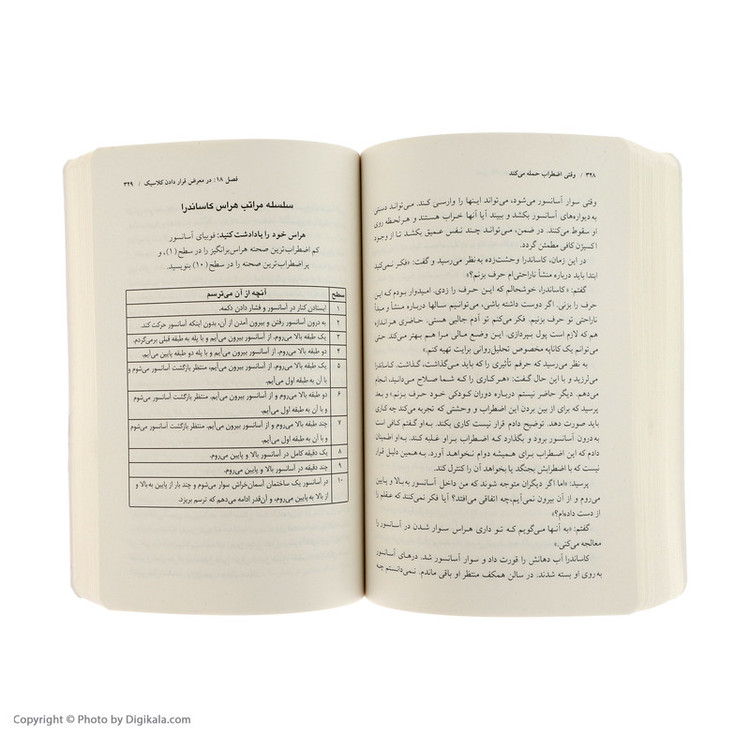 ۳۲۸ / وقتی اضطراب حمله می‌کند
وقتی سوار آسانسور می‌شود، می‌تواند اینها را وارسی کند. می‌تواند دستی
به دیواره‌های آسانسور بکشد و ببیند آیا آنها خراب هستند و هرلحظه روی
او سقوط می‌کنند. در ضمن، می‌تواند چند نفس عمیق بکشد تا از وجود
اکسیژن کافی مطمئن گردد.
در این زمان، کاساندرا وحشت‌زده به نظر می‌رسید و گفت: «فکر نمی‌کنید
ابتدا باید درباره منشأ ناراحتی‌ام حرف بزنیم؟»
گفتم: «کاساندرا، خوشحالم که این حرف را زدی. امیدوار بودم که این
حرف را بزنی. اگر دوست داشته باشی، می‌توانیم سالها درباره منشأ و مبدأ
ناراحتی تو حرف بزنیم. فکر می‌کنم تو آدم جالبی هستی. حاضری هر اندازه
هم که لازم است پول بپردازی. این وضع مالی مرا هم بهتر می‌کند حتی
می‌توانم یک کاناپه مخصوص تحلیل‌روانی برایت تهیه کنم.»
به نظر می‌رسید که حرفم تأثیری را که باید می‌گذاشت، گذاشت. کاساندرا
می‌لرزید و با این حال گفت: «هر کاری را که شما صلاح می‌دانید، انجام
می‌دهم. دیگر حاضر نیستم درباره دوران کودکی خود حرف بزنم.» و بعد
پرسید که برای از بین بردن این اضطراب و وحشتی که تجربه می‌کند چه کاری
باید صورت دهد. توضیح دادم قرار نیست کاری بکند. به‌او گفتم کافی است
به‌درون آسانسور برود و بگذارد که اضطراب بر او غلبه کند. به‌او اطمینان
دادم که این اضطراب برای همیشه دوام نخواهد آورد. به‌همین دلیل قرار
نیست که با اضطرابش بجنگد یا بخواهد آن را کنترل کند.
پرسید: «اما اگر دیگران متوجه شوند که من داخل آسانسور به بالا و پایین
می‌روم و از آن بیرون نمی‌آیم،چه اتفاقی می‌افتد؟ آیا فکر نمی‌کنند که عقلم را
از دست داده‌ام؟»
گفتم: «به آنها می‌گویم که تو داری هراس سوار شدن در آسانسور را
معالجه می‌کنی.»
کاساندرا آب دهانش را قورت داد و سوار آسانسور شد. درهای آسانسور
به روی او بسته شدند. در سالن همکف منتظر او باقی ماندم. نمی‌دانستم چه
فصل ۱۸: در معرض قرار دادن کلاسیک / ۳۲۹
سلسله مراتب هراس کاساندرا
هراس خود را یادداشت کنید: فوبیای آسانسور
کم اضطراب‌ترین صحنه هراس‌برانگیز را در سطح (۱)، و
پر اضطراب‌ترین صحنه را در سطح (۱۰) بنویسید.
سطح آنچه از آن می‌ترسم
۱ ایستادن کنار در آسانسور و فشار دادن دکمه.
۲ به درون آسانسور رفتن و بیرون آمدن از آن، بدون اینکه آسانسور حرکت کند.
۳ یک طبقه بالا می‌روم، از آسانسور بیرون می‌آیم و با پله به طبقه قبلی برمی‌گردم.
۴ دو طبقه بالا می‌روم، از آسانسور بیرون می‌آیم و با پله دو طبقه پایین می‌آیم.
۵ یک طبقه بالا می‌روم و از آسانسور بیرون می‌آیم، منتظر بازگشت آسانسور می‌شوم و
با آن به طبقه اول می‌آیم.
۶ دو طبقه بالا می‌روم و از آسانسور بیرون می‌آیم. منتظر بازگشت آسانسور می‌شوم
و با آن به طبقه اول می‌آیم.
۷ چند طبقه بالا می‌روم و از آسانسور بیرون می‌آیم، منتظر بازگشت آسانسور می‌شوم
و با آن به طبقه اول می‌آیم.
۸ یک دقیقه کامل در آسانسور بالا و پایین می‌روم.
۹ چند دقیقه در آسانسور بالا و پایین می‌روم.
۱۰ در آسانسور یک ساختمان آسمان‌خراش سوار می‌شوم و چند بار از پایین به‌بالا و
از بالا به پایین می‌روم، و آن‌قدر ادامه می‌دهم که ترسم بریزد.
Copyright © Photo by Digikala.com